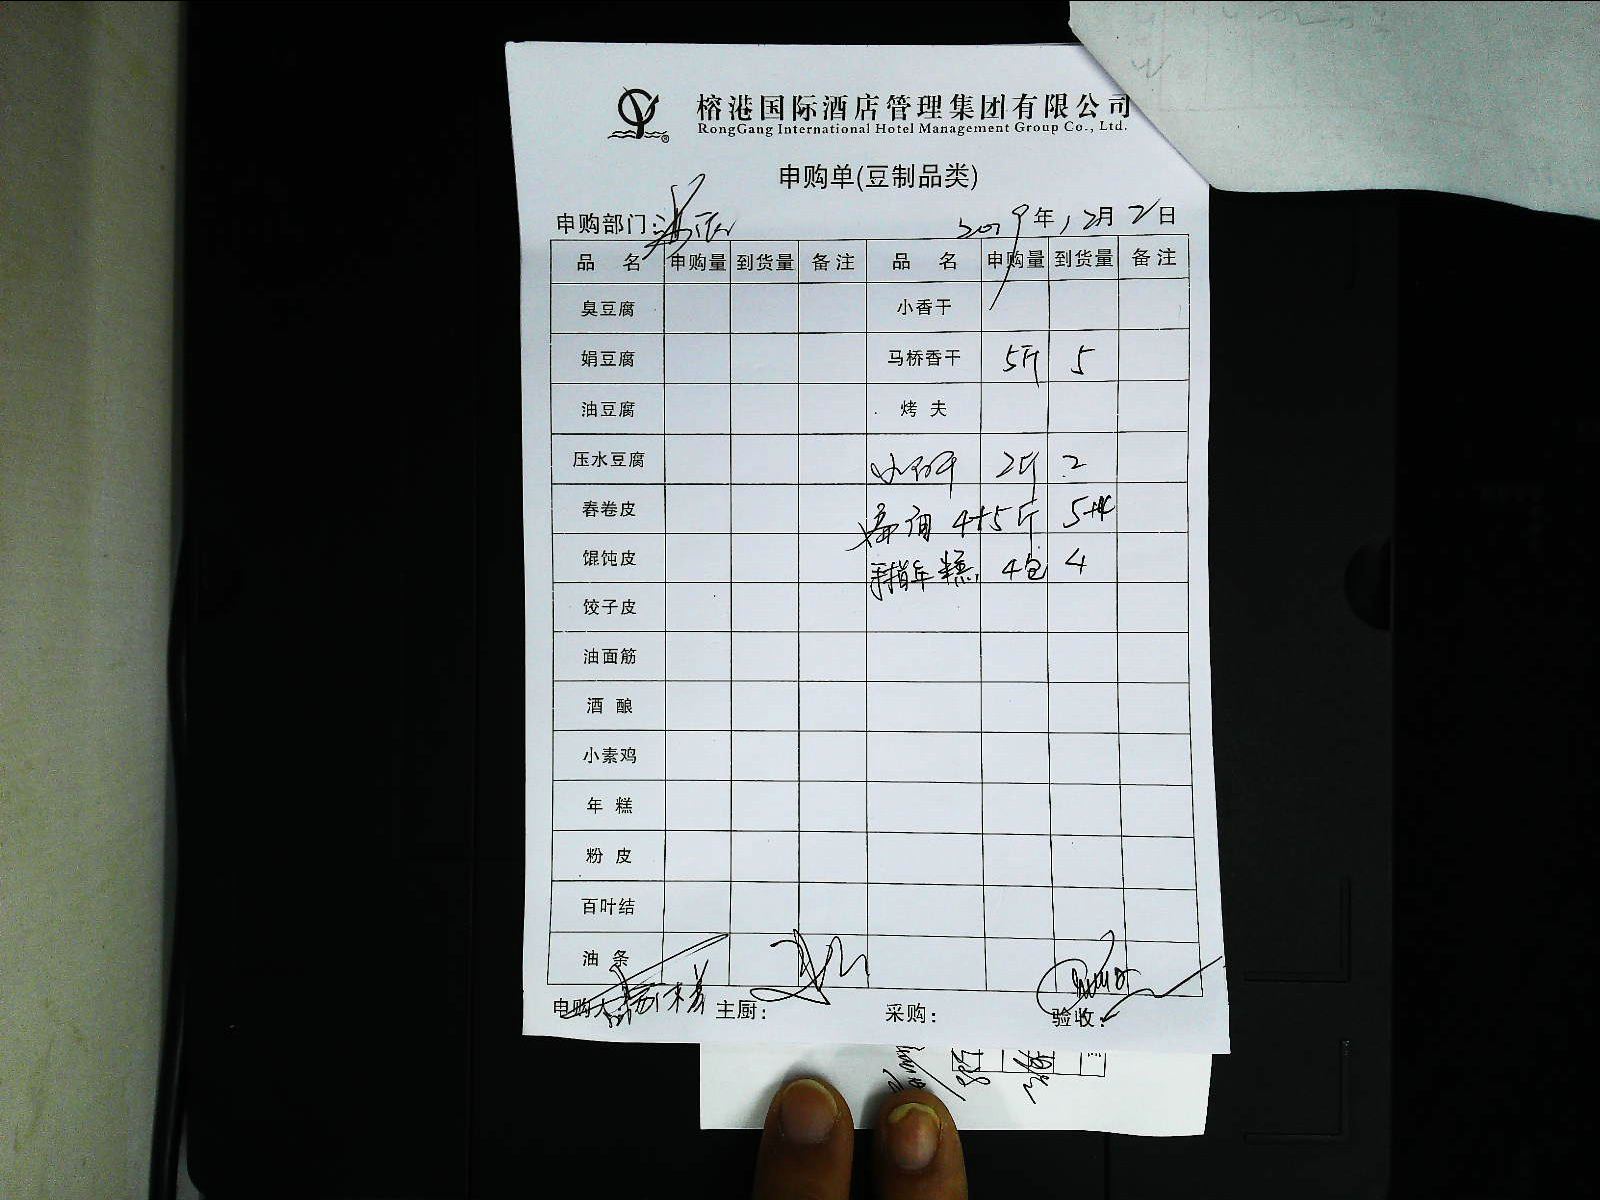 榕港国际酒店管理集团有限公司
RongGang International Hotel Management Group Co., Ltd.
申购单(豆制品类)
申购部门:
2019年12月2日
品 名 申购量 到货量 备注 品 名 申购量 到货量 备注
臭豆腐 小香干
娟豆腐 马桥香干 5斤 5
油豆腐 烤 夫
压水豆腐 2斤 2
春卷皮
馄饨皮 手指年糕 4包 4
饺子皮
油面筋
酒 酿
小素鸡
年 糕
粉 皮
百叶结
油 条
申购人: 主厨: 采购: 验收: